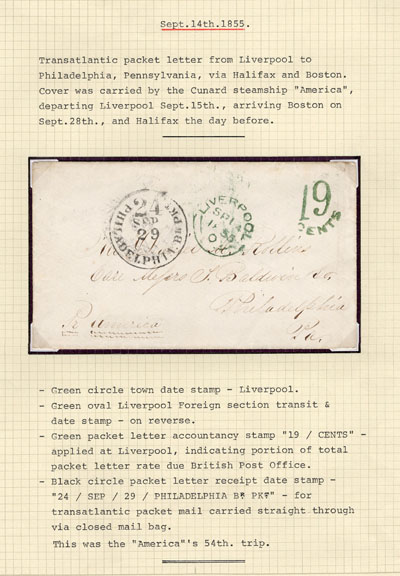 Sept.14th.1855.
Transatlantic packet letter from Liverpool to
Philadelphia, Pennsylvania, via Halifax and Boston.
Cover was carried by the Cunard steamship "America",
departing Liverpool Sept.15th., arriving Boston on
Sept.28th., and Halifax the day before.
24
SEP
29
PHILADELPHIA Br PKt
LIVERPOOL
SP 14
55
19
CENTS
Care Meyers T. Baldwin & Co
Philadelphia
Pa.
Pr America
- Green circle town date stamp - Liverpool.
- Green oval Liverpool Foreign section transit &
date stamp - on reverse.
- Green packet letter accountancy stamp "19 / CENTS" -
applied at Liverpool, indicating portion of total
packet letter rate due British Post Office.
- Black circle packet letter receipt date stamp -
"24 / SEP / 29 / PHILADELPHIA BR PKT" - for
transatlantic packet mail carried straight through
via closed mail bag.
This was the "America"'s 54th. trip.